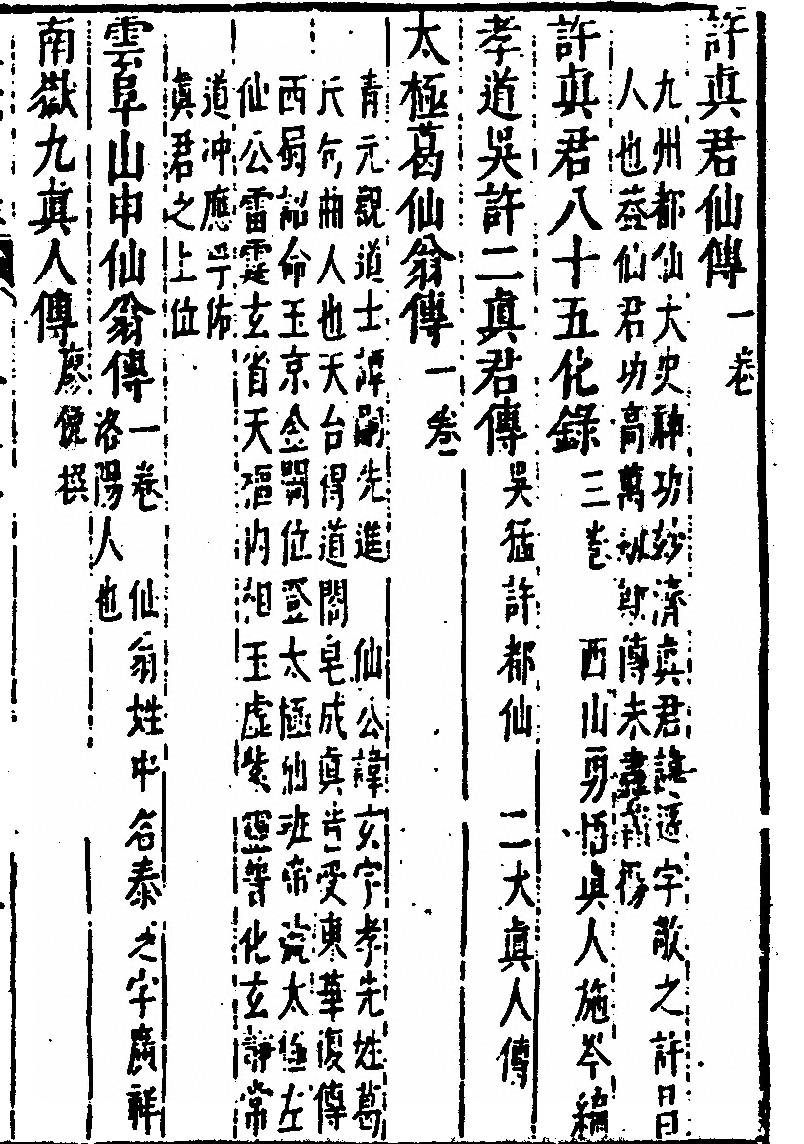 許真君仙傳一卷
九州都仙大史神功妙濟真君諱遜字敬之許昌
人也葢仙君功高萬劫歟傳未盡
許真君八十五化錄三卷 西山勇悟真人施岑編
孝道吳許二真君傳吳猛許都仙 二大真人傳
太極葛仙翁傳一卷
青元觀道士譚嗣先進 仙公諱玄字孝先姓葛
氏句曲人也天台得道閤皂成真昔受東華復傳
西蜀詔命玉京金闕位登太極仙班帝 太極左
仙公雷霆玄省天樞內相玉虛紫靈普化玄靜常
道冲應孚佑
真君之上位
雲阜山申仙翁傳一卷 仙翁姓申名泰之字廣祥
洛陽人也
南嶽九真人傳廖侁撰